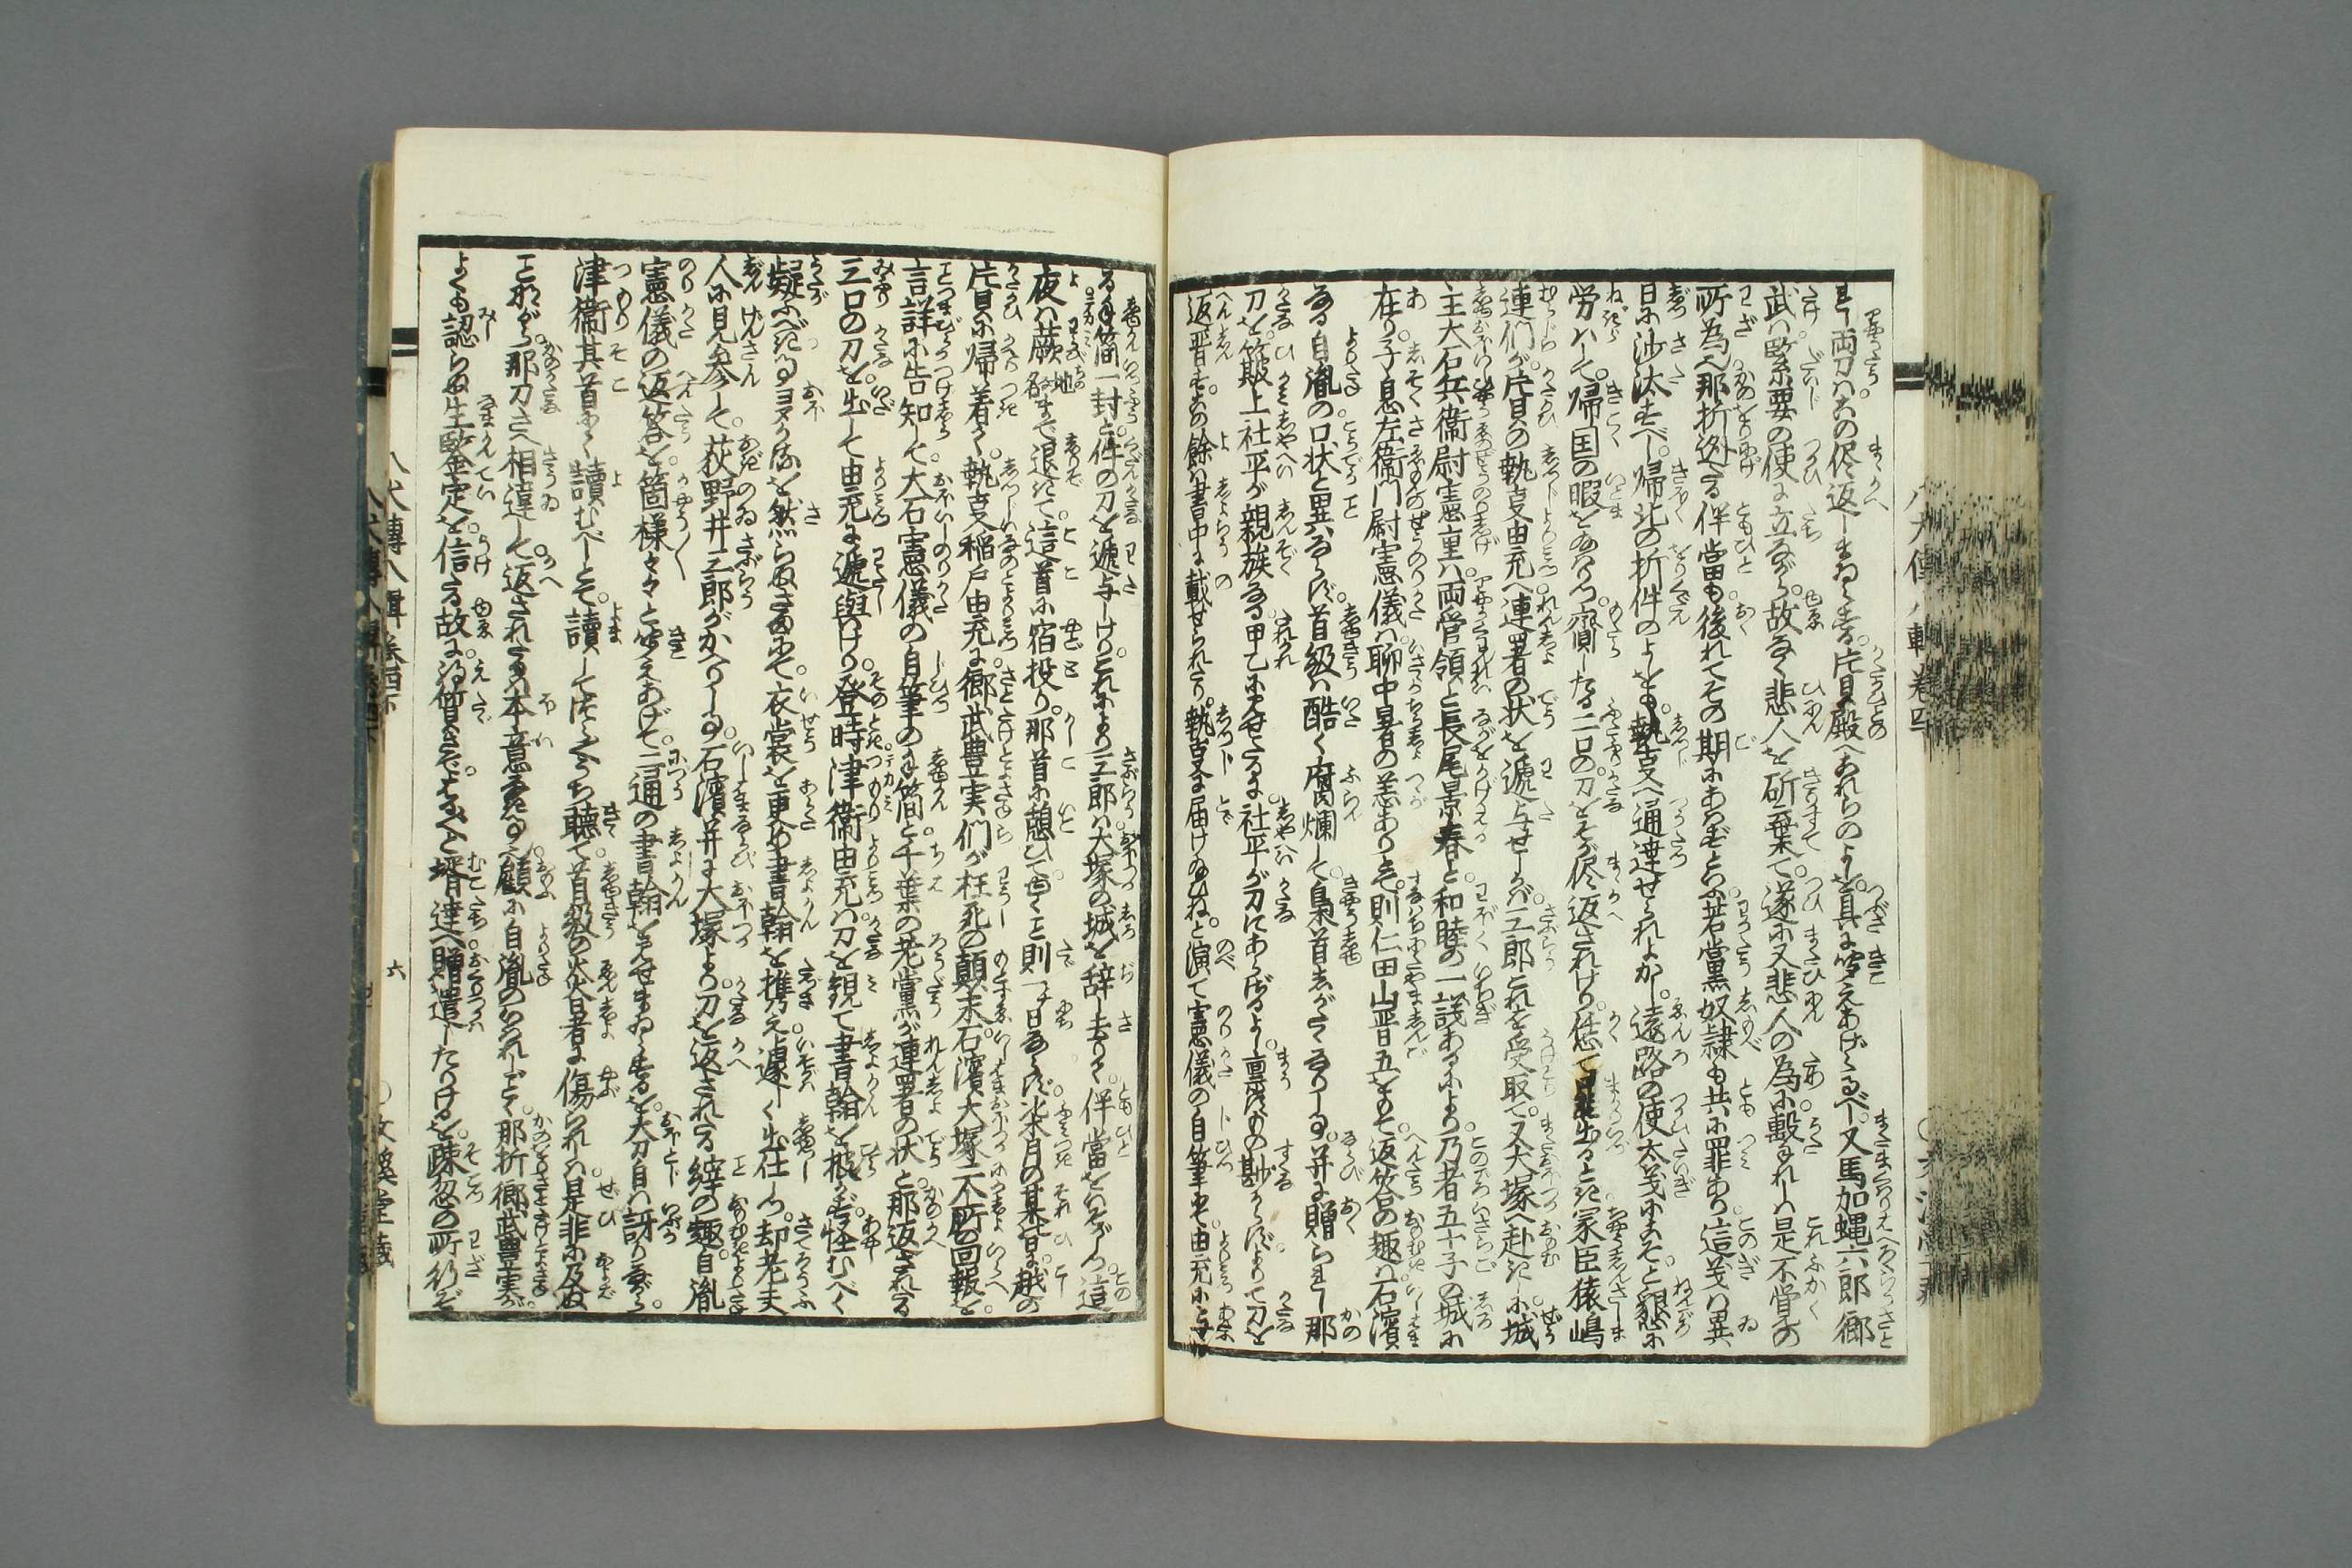 て両刀はこの侭返しまゐらする。片貝殿へこれらのよしを、具に聞えあげらるべし。又馬加蝿六郎郷
武は緊要の使に立ながら。故なく悲人を斫棄て。遂に又悲人の為に撃れしは是不覚の
所為へ那折迯たる伴當も。後れてその期にあはずといふ若党奴隷も共に罪あり。這義は異
日に沙汰すべし。帰北の折件のよしをも。執事へ通達せられよかし。遠路の使太義にこそ。と懇に
労ひて。帰国の暇をたまひつ。齎したる二口の刀をそが侭返されけり。恁て罷出るとき家臣猿嶋
連們が。片貝の執事由充へ連署の状を逓与せしかば三郎これを受取て。又大塚へ赴きしに城
主大石兵衛尉憲重は。両管領と長尾景春と。和睦の一議あるにより。乃者五十子の城に
在り。子息左衛門尉憲儀は。聊中暑の恙ありとて。則仁田山晋五をもて。返答の趣は。石濱
なる自胤の口状と異ならず。首級は酷く腐爛して。梟首しがたくなりしかば。并に贈られし那
刀を。簸上社平が親族なる。甲乙に見せたるに。社平が刀にあらざるよし。稟すもの尠からず。よりて刀を
返晋す。この餘は書中に載せられたり。執事に届け給ひね。と演て憲儀の自筆もて。由充に与
る手簡一封と件の刀を逓与しけり。これにより三郎は。大塚の城を辞し去りて。伴當をいそがしつ。這
夜は蕨地名まで退きて。這首に宿投り。那首に憩ひて。ゆくと則一日ならず。氷月の某日に。越の
片貝に帰着て。執事稲戸由充に。郷武豊実們が枉死の顛末。石濱大塚二个所の回報を。
言詳に告知して。大石憲儀の自筆の手簡と千葉の老黨が連署の状と。那返されたる
三口の刀を。出して由充に逓與けり。登時津衛由充は。刀を観て書翰を披かず。怪むべく
疑ふべきことの多かるを。然らぬさまにて。衣裳を更め書翰を携え。遽しく出仕しつ。却老夫
人に見参して。荻野井三郎がかへりしよし。石濱并に大塚より。刀を返されたる縡の趣。自胤
憲儀の返答を。箇様々々と聞えあげて。二通の書翰を見せまゐらするを。大刀自は訝りながら。
津衛其首にて。讀むべしとて。讀してつくづくうち聴て。首級の炎暑に傷られしは是非に及ば
ことながら。那刀さへ相違して。返されたるは本意なきことへ。顧に自胤のいはれしごとく。那折郷武豊実が。
よくも認らぬ生鑒定を。信たる故に得意㒵にて。とくとくと壻達へ贈遣したりけるを。疎忽の所行ぞ
八犬傳八輯巻四下
六
文溪堂蔵